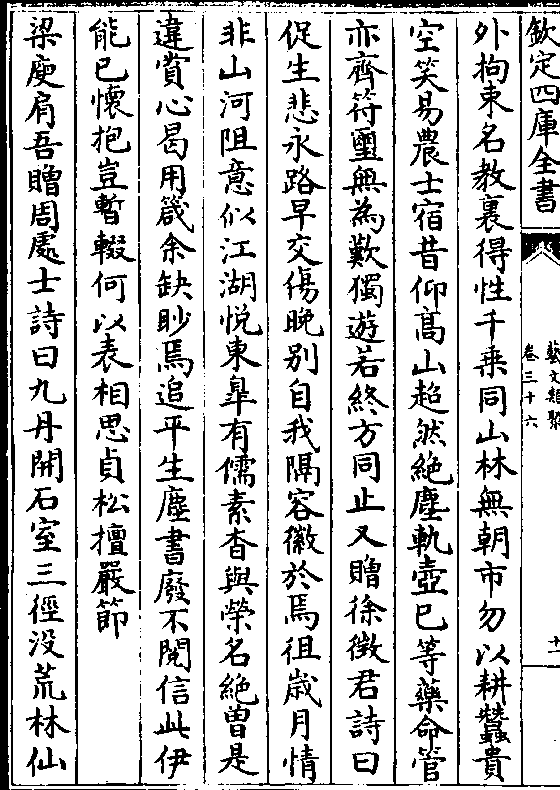 欽定四庫全書
藝文類聚
卷三十六
十一
外拘束名教裏得性千乗同山林無朝市勿以耕蠶貴
空笑易農士宿昔仰髙山超然絶塵軌壺已等藥命管
亦齊符璽無為歎獨遊若終方同止又贈徐徵君詩曰
促生悲永路早交傷晚别自我隔容徽於焉徂歳月情
非山河阻意似江湖悦東臯有儒素杳與榮名絶曽是
違賞心曷用箴余缺眇焉追平生塵書廢不閱信此伊
能已懷抱豈暫輟何以表相思貞松擅嚴節
梁庾肩吾贈周處士詩曰九丹開石室三徑没荒林仙